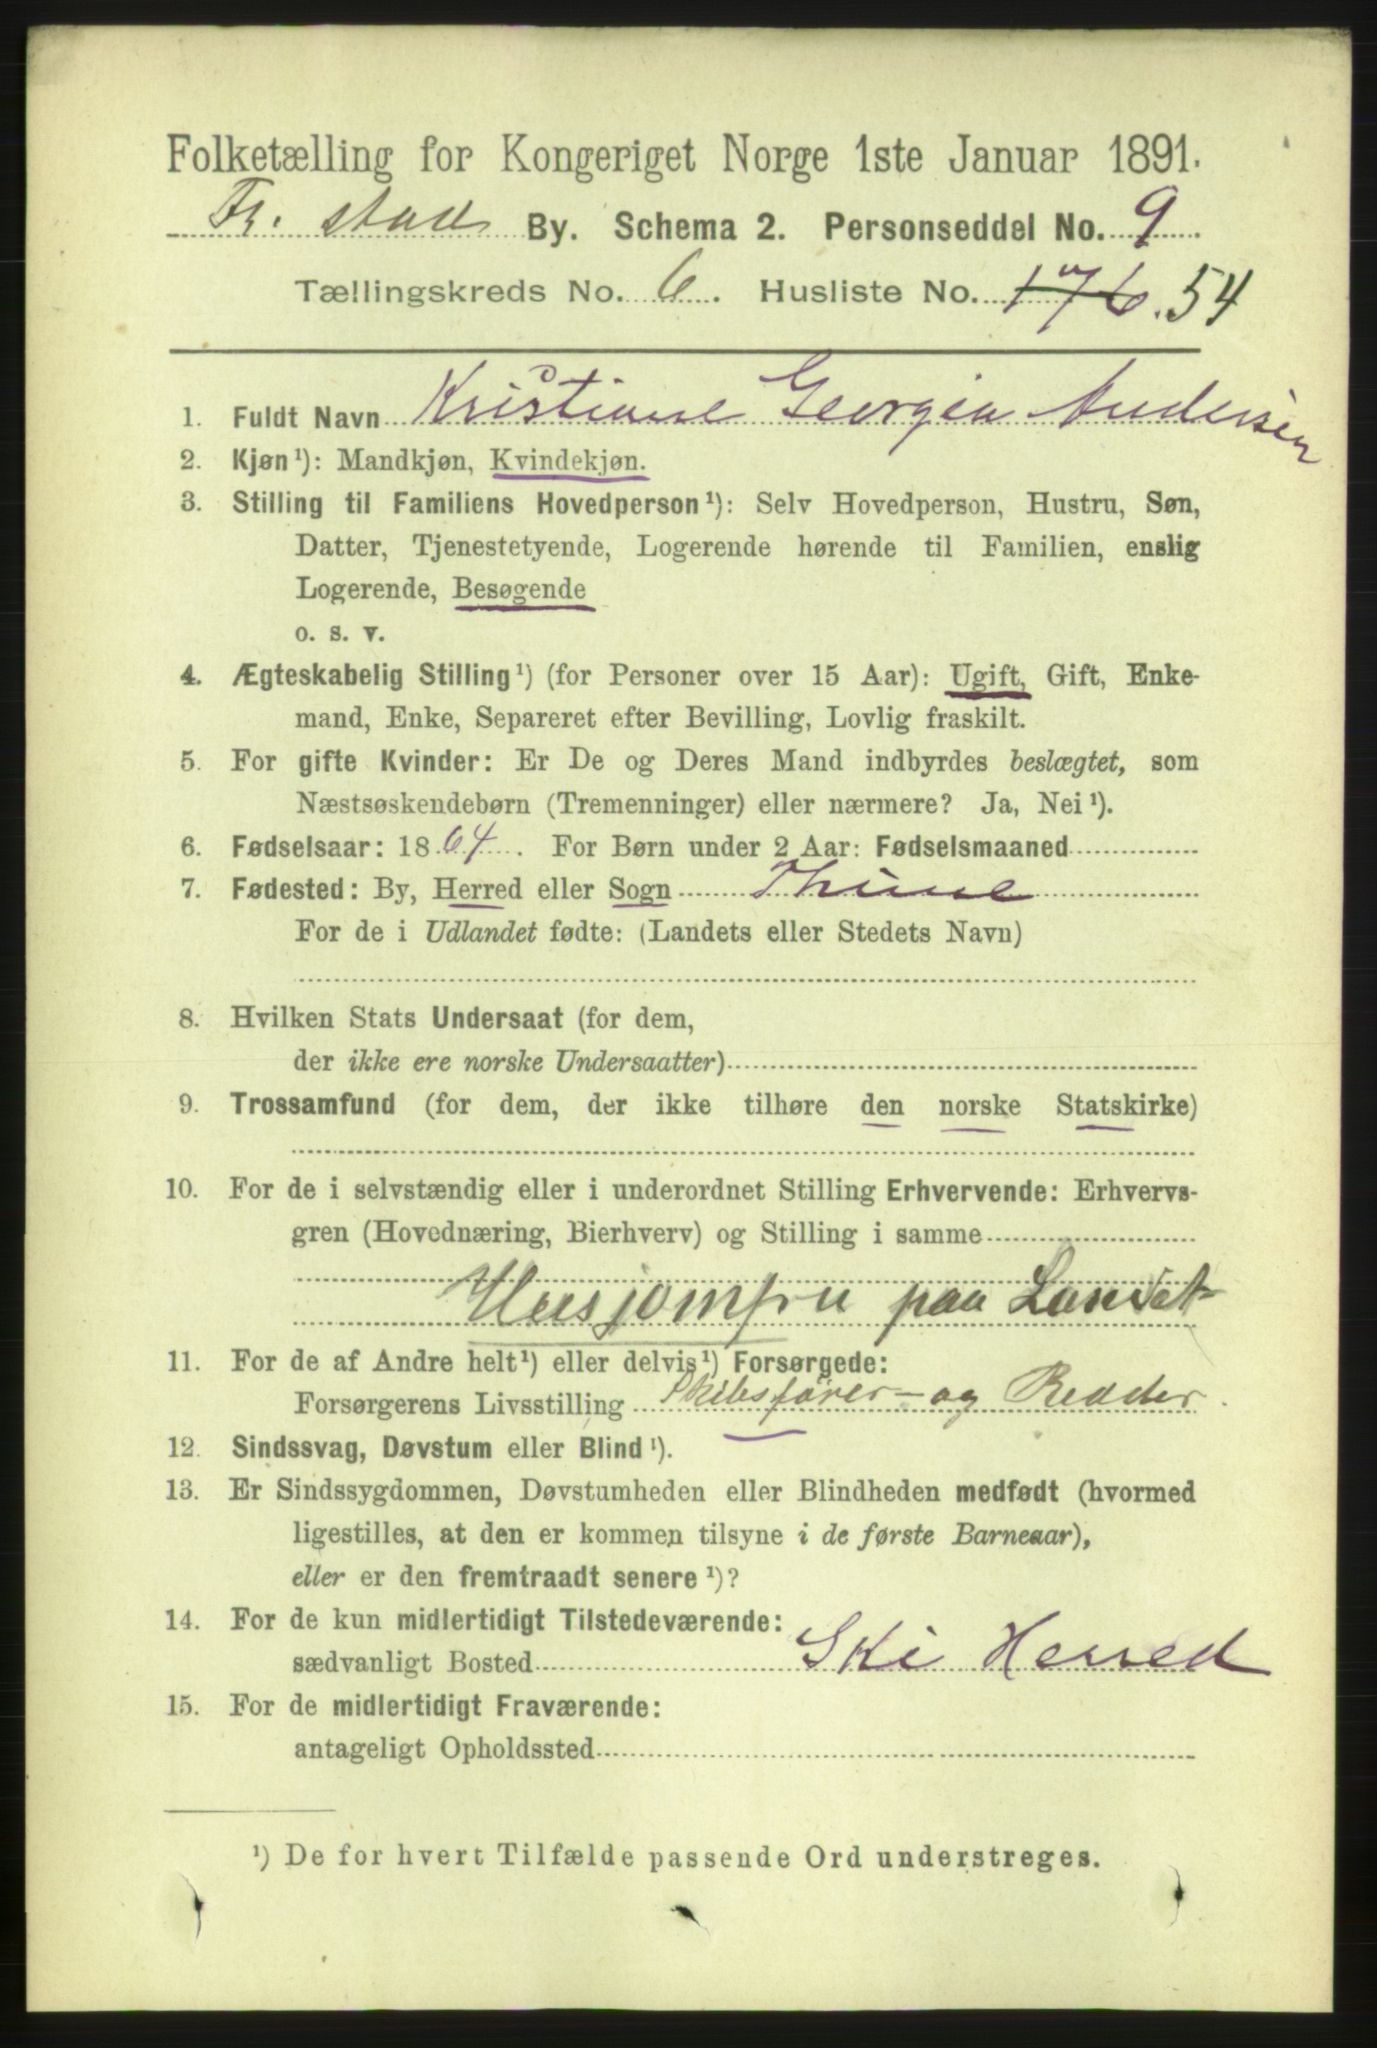 Folketælling for Kongeriget Norge 1ste Januar 1891.
Fr. stad By. Schema 2. Personseddel No. 9
Tællingskreds No. 6. Husliste No. 176. 54
1. Fuldt Navn Kristiane Georgia Andersen
2. Kjøn¹): Mandkjøn, Kvindekjøn.
3. Stilling til Familiens Hovedperson¹): Selv Hovedperson, Hustru, Søn,
Datter, Tjenestetyende, Logerende hørende til Familien, enslig
Logerende, Besøgende
o. s. v.
4. Ægteskabelig Stilling¹) (for Personer over 15 Aar): Ugift, Gift, Enke-
mand, Enke, Separeret efter Bevilling, Lovlig fraskilt.
5. For gifte Kvinder: Er De og Deres Mand indbyrdes beslægtet, som
Næstsøskendebørn (Tremenninger) eller nærmere? Ja, Nei¹).
6. Fødselsaar: 1864. For Børn under 2 Aar: Fødselsmaaned
7. Fødested: By, Herred eller Sogn Thune
For de i Udlandet fødte: (Landets eller Stedets Navn)
8. Hvilken Stats Undersaat (for dem,
der ikke ere norske Undersaatter)
9. Trossamfund (for dem, der ikke tilhøre den norske Statskirke)
10. For de i selvstændig eller i underordnet Stilling Erhvervende: Erhvervs-
gren (Hovednæring, Bierhverv) og Stilling i samme
Husjomfru paa Landet
11. For de af Andre helt¹) eller delvis¹) Forsørgede:
Forsørgerens Livsstilling Skibsfører- og Redder
12. Sindssvag, Døvstum eller Blind¹).
13. Er Sindssygdommen, Døvstumheden eller Blindheden medfødt (hvormed
ligestilles, at den er kommen tilsyne i de første Barneaar),
eller er den fremtraadt senere¹)?
14. For de kun midlertidigt Tilstedeværende:
sædvanligt Bosted Ski Herred
15. For de midlertidigt Fraværende:
antageligt Opholdssted
¹) De for hvert Tilfælde passende Ord understreges.